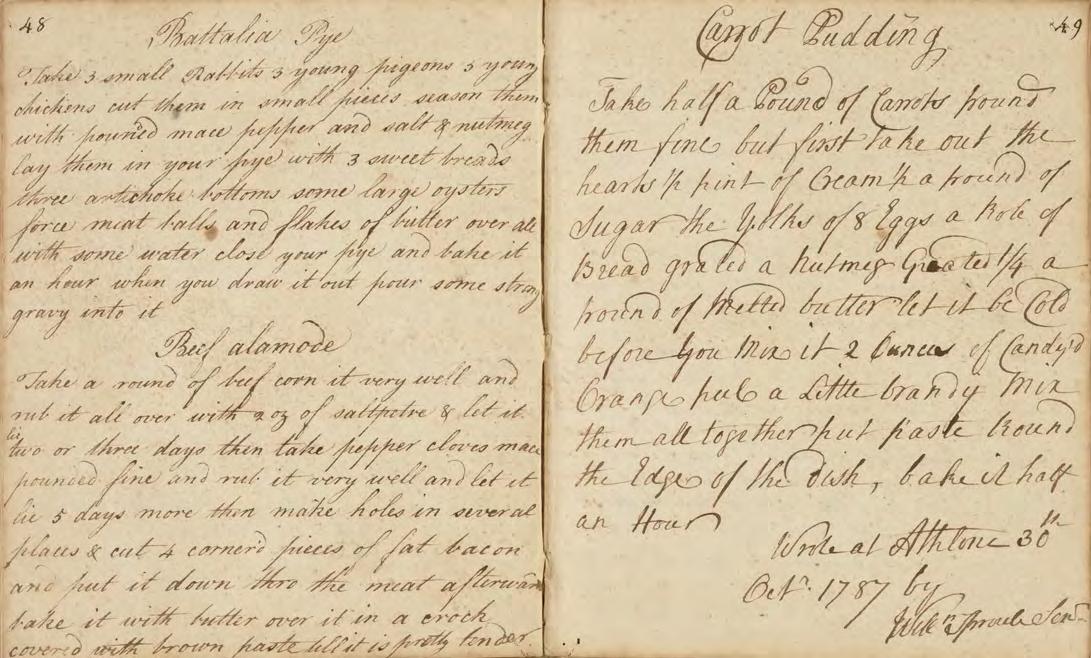 48
Battalia Pye
Take 3 small Rabbits 3 young pigeons 3 young
chickens cut them in small pieces season them
with pounded mace pepper and salt & nutmeg
lay them in your pye with 3 sweet breads
three artichoke bottoms some large oysters
force meat balls and flakes of butter over all
with some water close your pye and bake it
an hour when you draw it out pour some strong
gravy into it
Beef alamode
Take a round of beef corn it very well and
rub it all over with 2 oz of saltpetre & let it
lie
two or three days then take pepper cloves mace
pounded fine and rub it very well and let it
lie 5 days more then make holes in several
places & cut 4 corner'd pieces of fat bacon
and put it down thro the meat afterward
bake it with butter over it in a crock
covered with brown paste till it is pretty tender
49
Carrot Pudding
Take half a Pound of Carrots pound
them fine but first take out the
hearts ½ pint of Cream ½ a pound of
Sugar the Yolks of 8 Eggs a Role of
Bread grated a Nutmeg Greated 1/4 a
pound of Melted butter let it be Cold
before you Mix it 2 Ounces of Candy'd
Orange peel a Little brandy Mix
them all together put paste Round
the Edge of the Dish, bake it half
an Hour
Wrote at Athlone 30th
Octr. 1787 by
Willm Sproule Senr